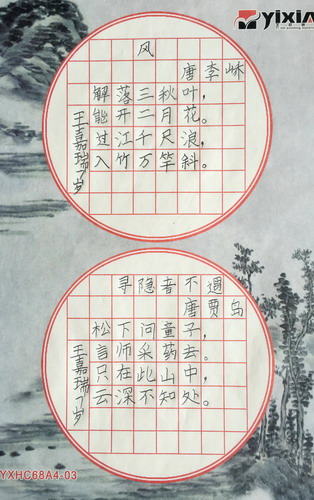 yixin
风
唐李峤
解落三秋叶，
能开二月花。
过江千尺浪，
入竹万竿斜。
王嘉瑞7岁
寻隐者不遇
唐贾岛
松下问童子，
言师采药去。
只在此山中，
云深不知处。
王嘉瑞7岁
YXHC68A4-03